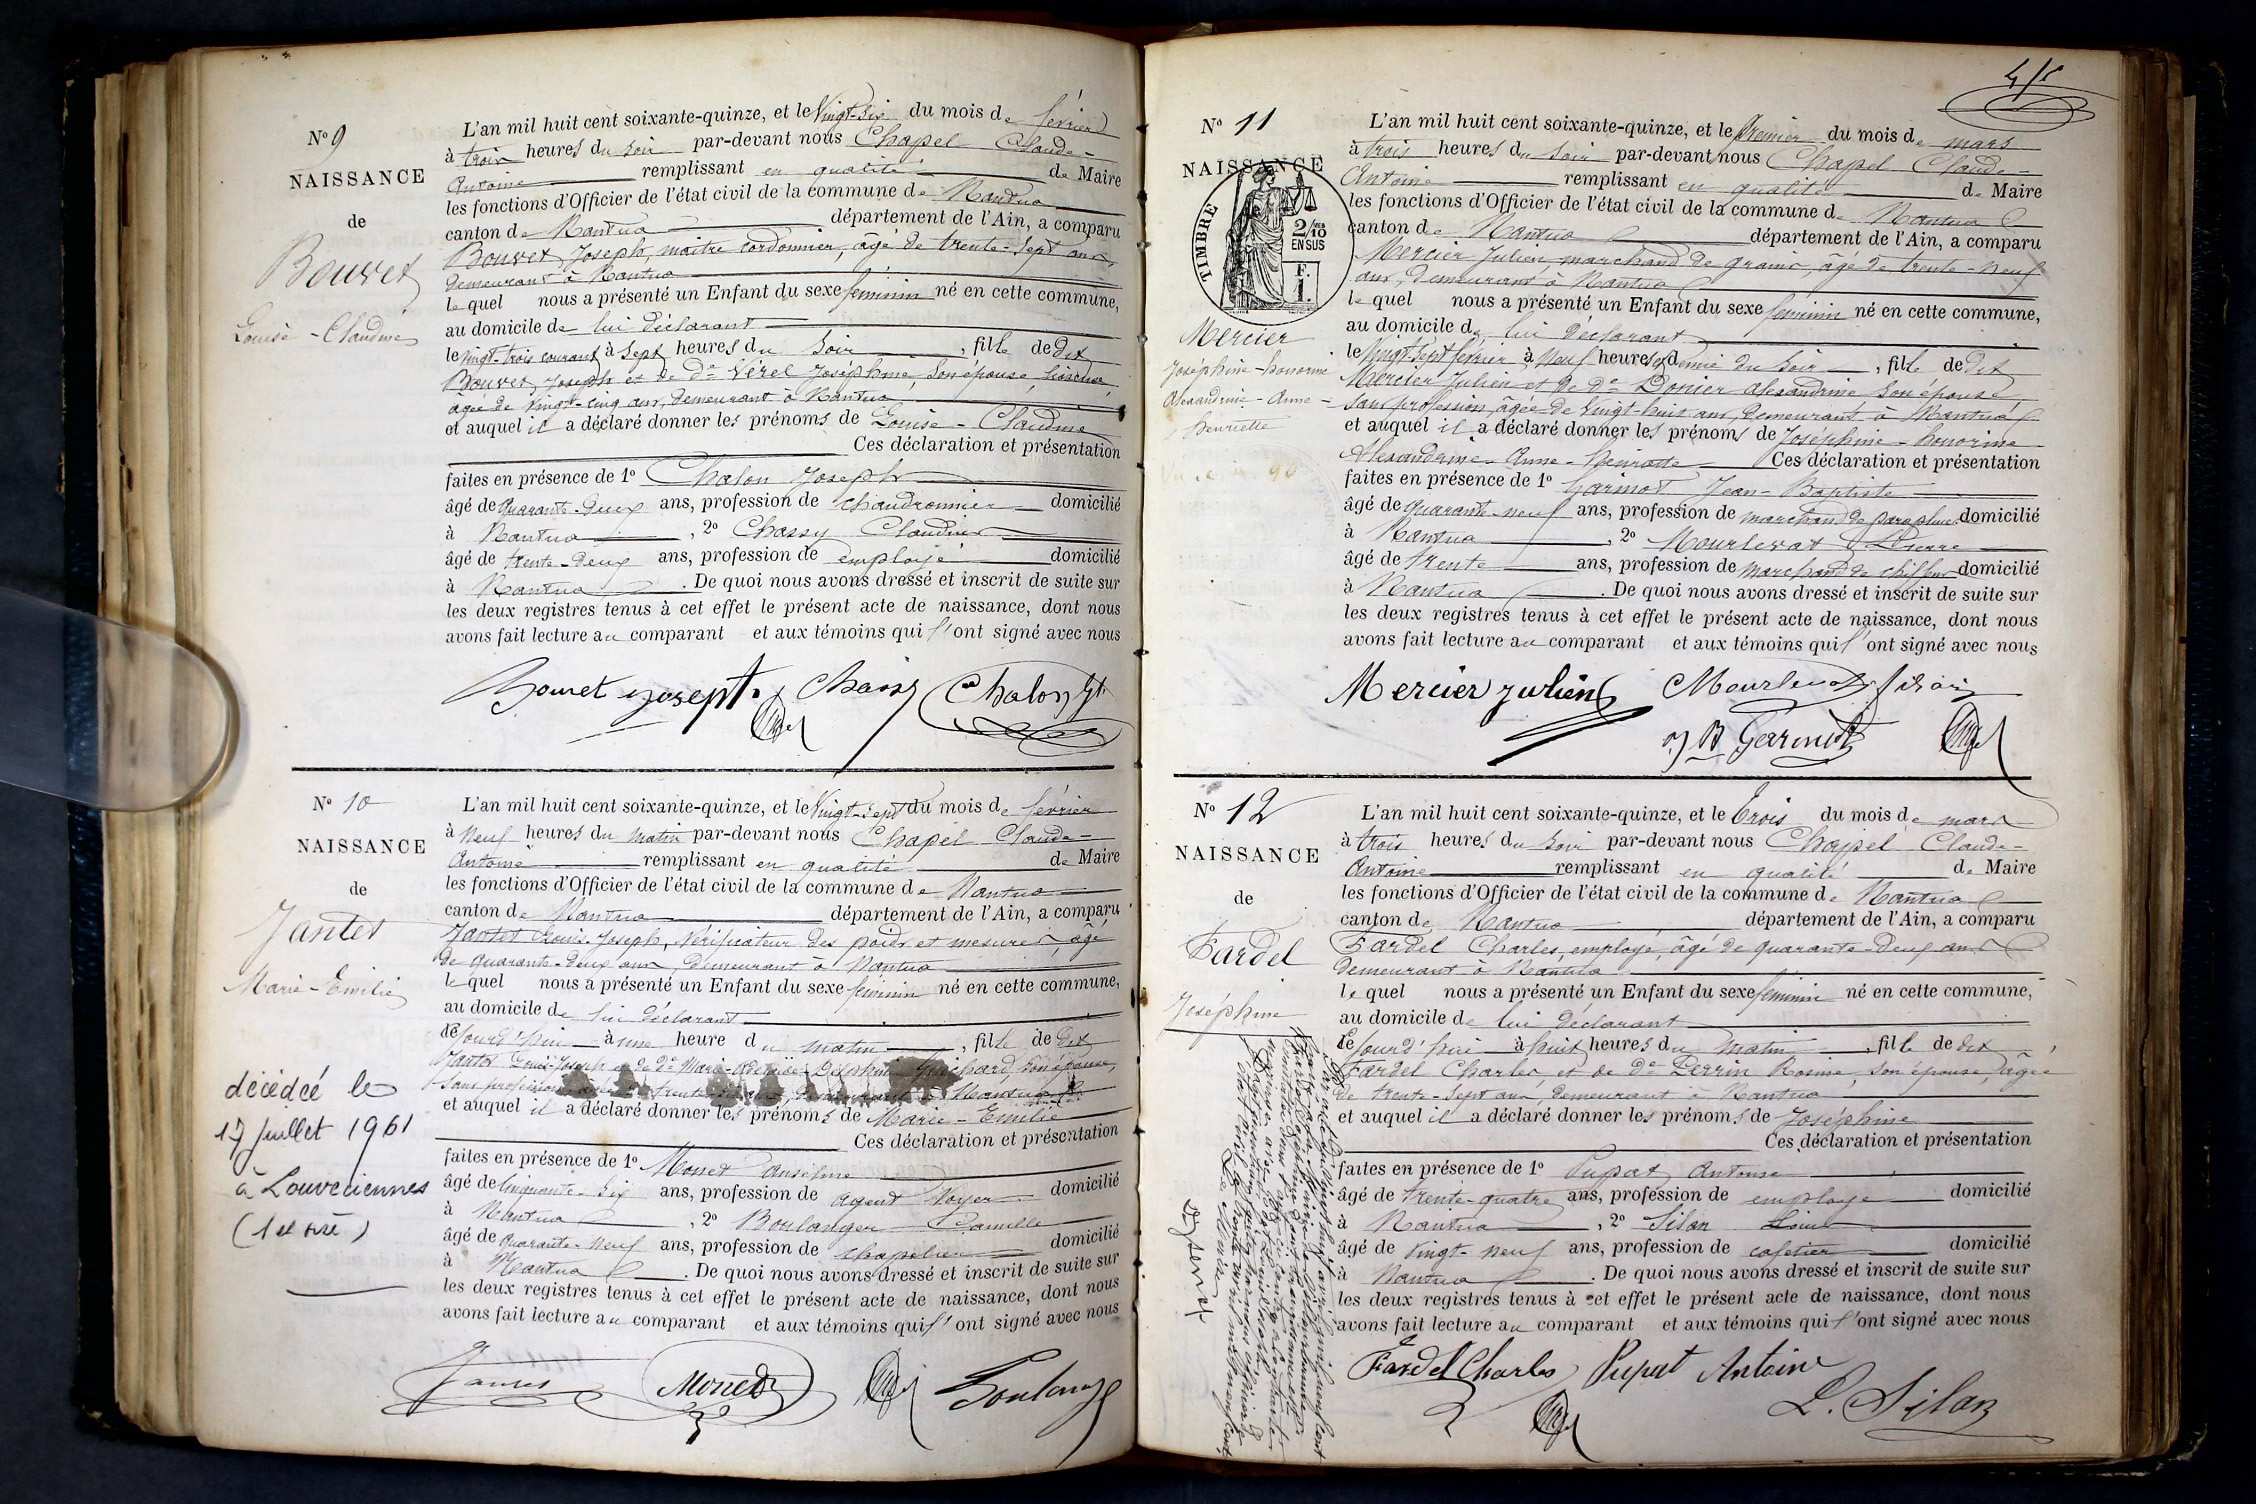 N° 9
NAISSANCE
de
Bouvet
Louise - Claudine
L'an mil huit cent soixante-quinze, et le Vingt-Six du mois de février
à trois heures du soir par-devant nous Chapel Claude-
Antoine remplissant en qualité de Maire
les fonctions d'Officier de l'état civil de la commune de Nantua
canton de Nantua département de l'Ain, a comparu
Bouvet Joseph, maître cordonnier, âgé de trente-sept ans,
demeurant à Nantua
le quel nous a présenté un Enfant du sexe féminin né en cette commune,
au domicile de lui déclarant
le vingt-trois courant à Sept heures du Soir, fille de dit
Bouvet Joseph et de De Vérel Joséphine, son épouse,
âgée de vingt-cinq ans, demeurant à Nantua
et auquel il a déclaré donner les prénoms de Louise - Claudine
Ces déclaration et présentation
faites en présence de 1° Chalon Joseph
âgé de quarante-deux ans, profession de chaudronnier domicilié
à Nantua, 2° Chassy Claudius
âgé de trente-deux ans, profession de employé domicilié
à Nantua. De quoi nous avons dressé et inscrit de suite sur
les deux registres tenus à cet effet le présent acte de naissance, dont nous
avons fait lecture au comparant et aux témoins qui l'ont signé avec nous
Bouvet joseph Chassy Chalon Jh
N° 10
NAISSANCE
de
Jantet
Marie - Emilie
décédée le
17 juillet 1961
à Louveciennes
L'an mil huit cent soixante-quinze, et le Vingt-Sept du mois de février
à Neuf heures du matin par-devant nous Chapel Claude-
Antoine remplissant en qualité de Maire
les fonctions d'Officier de l'état civil de la commune de Nantua
canton de Nantua département de l'Ain, a comparu
Jantet Louis Joseph, Vérificateur des poids et mesures, âgé
de quarante-deux ans, demeurant à Nantua
le quel nous a présenté un Enfant du sexe féminin né en cette commune,
au domicile de lui déclarant
le jourd'hui à une heure du matin, fille de dit
Jantet Louis-Joseph et de De Marie-Adélaïde Delphine son épouse,
Sans profession trente demeurant à Nantua
et auquel il a déclaré donner les prénoms de Marie - Emilie
Ces déclaration et présentation
faites en présence de 1° Monet Anselme
âgé de Cinquante-Six ans, profession de agent Voyer domicilié
à Nantua, 2° Boulanger Camille
âgé de quarante-neuf ans, profession de chapelier domicilié
à Nantua. De quoi nous avons dressé et inscrit de suite sur
les deux registres tenus à cet effet le présent acte de naissance, dont nous
avons fait lecture au comparant et aux témoins qui l'ont signé avec nous
Jantet Monet Boulanger
N° 11
NAISSANCE
TIMBRE
2/10
EN SUS
F.
1.
Mercier
Joséphine - honorine
Alexandrine - Anne -
henriette
L'an mil huit cent soixante-quinze, et le Premier du mois de mars
à trois heures du soir par-devant nous Chapel Claude-
Antoine remplissant en qualité de Maire
les fonctions d'Officier de l'état civil de la commune de Nantua
canton de Nantua département de l'Ain, a comparu
Mercier Julien, marchand de grains, âgé de trente-neuf
ans, demeurant à Nantua
le quel nous a présenté un Enfant du sexe féminin né en cette commune,
au domicile de lui déclarant
le Vingt-Sept février à Neuf heures et demie du Soir, fille de dit
Mercier Julien et de De Donier Alexandrine son épouse,
sans profession, âgée de Vingt-huit ans, demeurant à Nantua
et auquel il a déclaré donner les prénoms de Joséphine - honorine
Alexandrine - Anne - henriette Ces déclaration et présentation
faites en présence de 1° Garmot Jean-Baptiste
âgé de quarante-neuf ans, profession de marchand de parapluies domicilié
à Nantua, 2° Mourlevat Pierre
âgé de trente ans, profession de marchand de chiffons domicilié
à Nantua. De quoi nous avons dressé et inscrit de suite sur
les deux registres tenus à cet effet le présent acte de naissance, dont nous
avons fait lecture au comparant et aux témoins qui l'ont signé avec nous
Mercier julien Mourlevat
J B Garmot
N° 12
NAISSANCE
de
Fardel
Joséphine
L'an mil huit cent soixante-quinze, et le Trois du mois de mars
à trois heures du soir par-devant nous Chapel Claude-
Antoine remplissant en qualité de Maire
les fonctions d'Officier de l'état civil de la commune de Nantua
canton de Nantua département de l'Ain, a comparu
Fardel Charles, employé, âgé de quarante-deux ans
demeurant à Nantua
le quel nous a présenté un Enfant du sexe féminin né en cette commune,
au domicile de lui déclarant
le jourd'hui à huit heures du matin, fille de dit
Fardel Charles, et de De Perrin Rosine, son épouse, âgée
de trente-sept ans, demeurant à Nantua
et auquel il a déclaré donner les prénoms de Joséphine
Ces déclaration et présentation
faites en présence de 1° Pupat Antoine
âgé de trente-quatre ans, profession de employé domicilié
à Nantua, 2° Silan Louis
âgé de Vingt-neuf ans, profession de cafetier domicilié
à Nantua. De quoi nous avons dressé et inscrit de suite sur
les deux registres tenus à cet effet le présent acte de naissance, dont nous
avons fait lecture au comparant et aux témoins qui l'ont signé avec nous
Fardel Charles Pupat Antoine
L. Silan